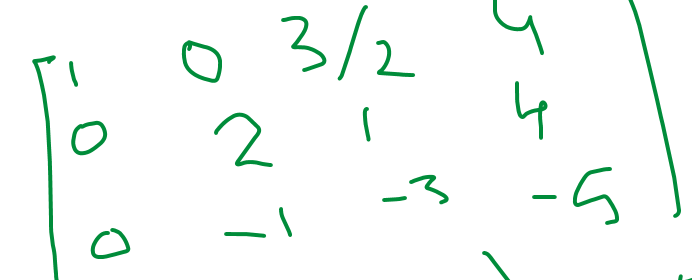 1 0 3/2 4
0 2 1 4
0 -1 -3 -5